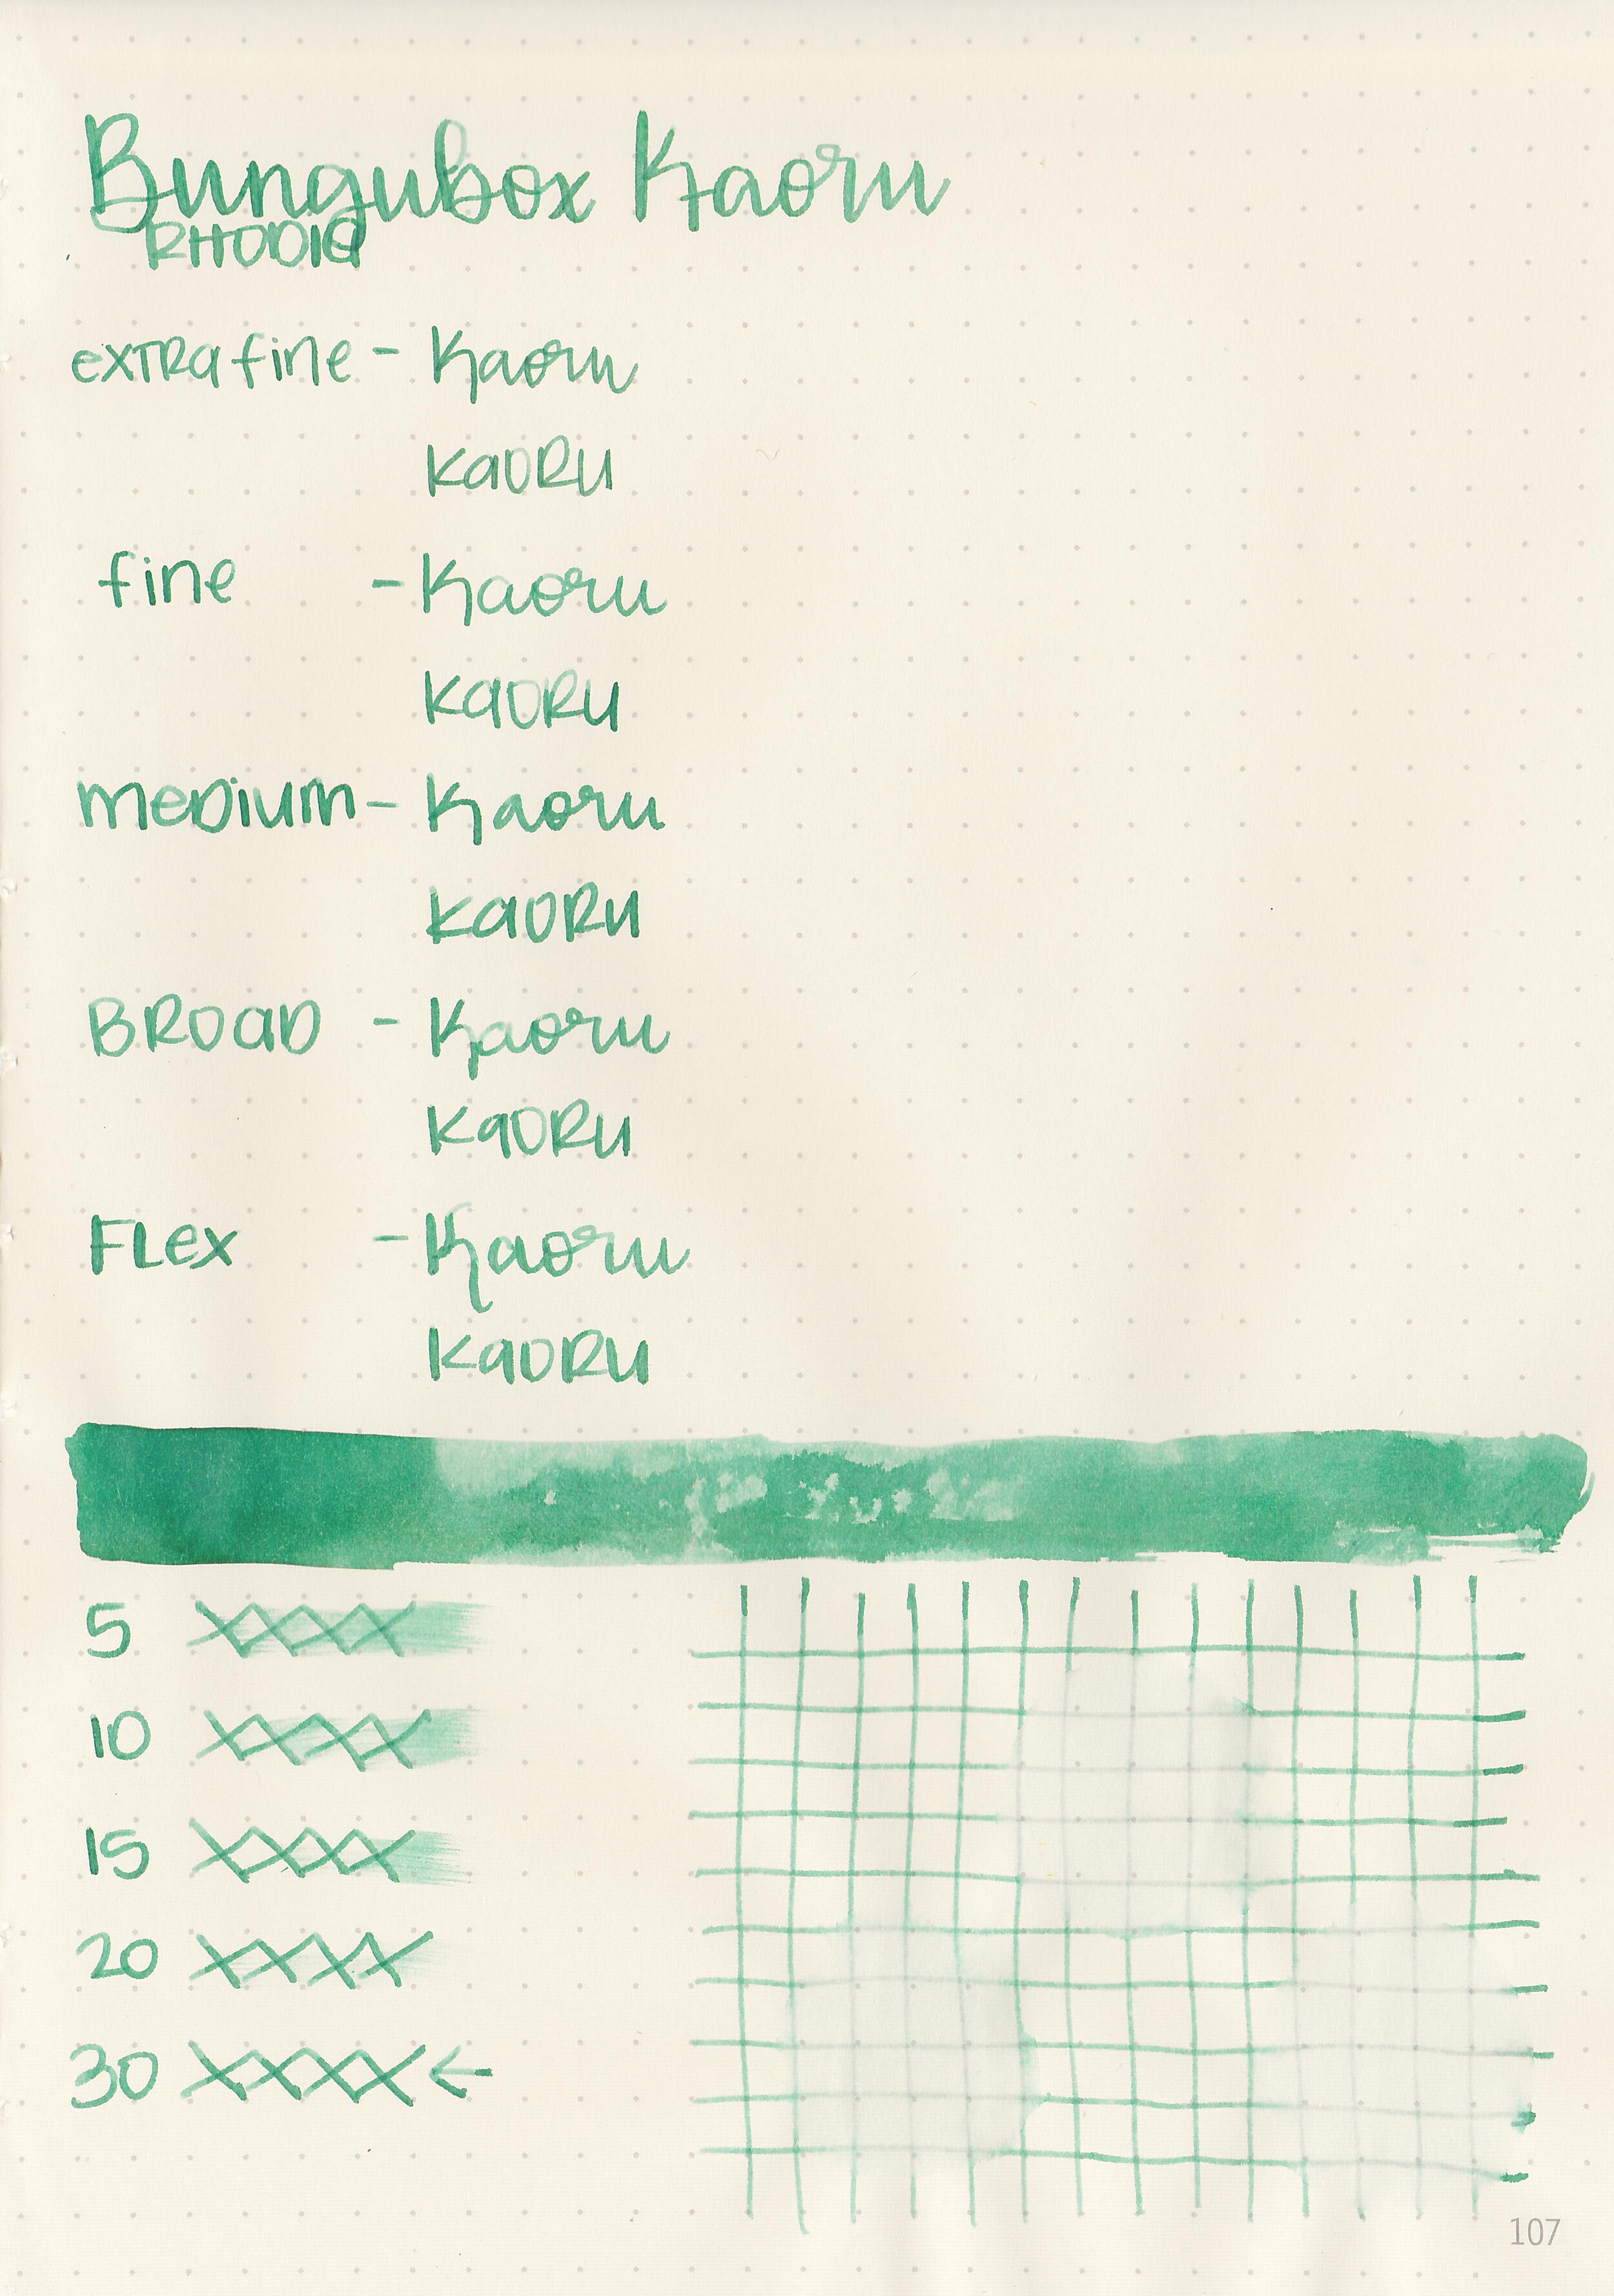 Bungubox Kaoru
RHODIa
exTRa fine - Kaoru
KaORu
fine - Kaoru
KaORu
meDium - Kaoru
KaORu
BROaD - Kaoru
KaORu
FLex - Kaoru
KaORu
5 XXXX
10 XXXX
15 XXXX
20 XXXX
30 XXXX ←
107